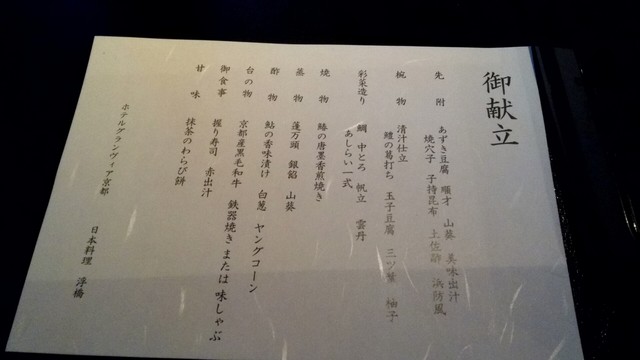 御献立
先附 あずき豆腐 順才 山葵 美味出汁
焼穴子 子持昆布 土佐酢 浜防風
椀物 清汁仕立
鱧の葛打ち 玉子豆腐 三ツ葉 柚子
彩菜造り 鯛 中とろ 帆立 雲丹
あしらい一式
焼物 鰆の唐墨香煎焼き
蒸物 蓮万頭 銀餡 山葵
酢物 鮎の香味漬け 白葱 ヤングコーン
台の物 京都産黒毛和牛 鉄器焼きまたは味しゃぶ
御食事 握り寿司 赤出汁
甘味 抹茶のわらび餅
ホテルグランヴィア京都 日本料理 浮橋